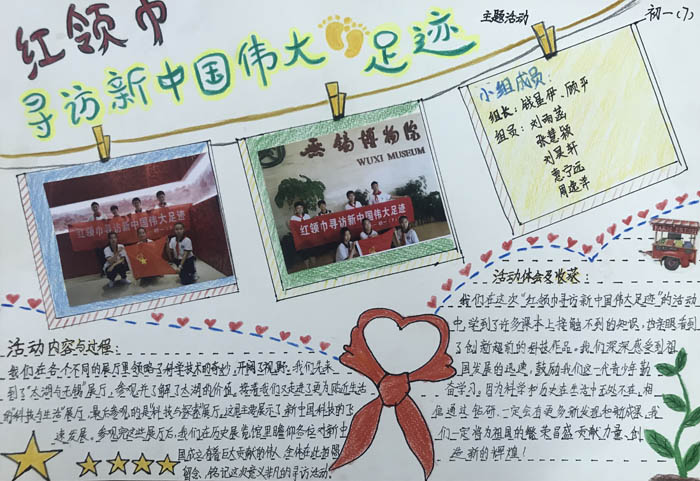 红领巾
寻访新中国伟大足迹
主题活动
初一(7)
小组成员:
组长:钱星伊、顾平
组员:刘雨菡
张慧颖
刘昊轩
惠宁远
周逸洋
红领巾寻访新中国伟大足迹
无锡博物院
WUXI MUSEUM
红领巾寻访新中国伟大足迹
活动内容与过程:
我们在各个不同的展厅里领略了科学技术的奇妙,开阔了视野。我们先来
到了“太湖与无锡”展厅,参观并了解了太湖的价值。接着我们又走进了更为贴近生活
的科技与生活展厅,最后参观的是科技与探索展厅,这里主要展示了新中国科技的飞
速发展。参观完这些展厅后,我们在历史展览馆里瞻仰各位对新中
国成立有着巨大贡献的伟人,全体在此拍照
留念,铭记这次意义非凡的寻访活动。
活动体会及收获:
我们在这次“红领巾寻访新中国伟大足迹”的活动
中,学到了许多课本上接触不到的知识,也亲眼看到
了创新超前的科技作品。我们深深感受到祖
国发展的迅速,鼓励我们这一代青年勤
奋学习。因为科学和历史在生活中无处不在,相
信通过钻研,一定会有更多新发现和新成果。我
们一定将为祖国的繁荣昌盛贡献力量,创
造新的辉煌!